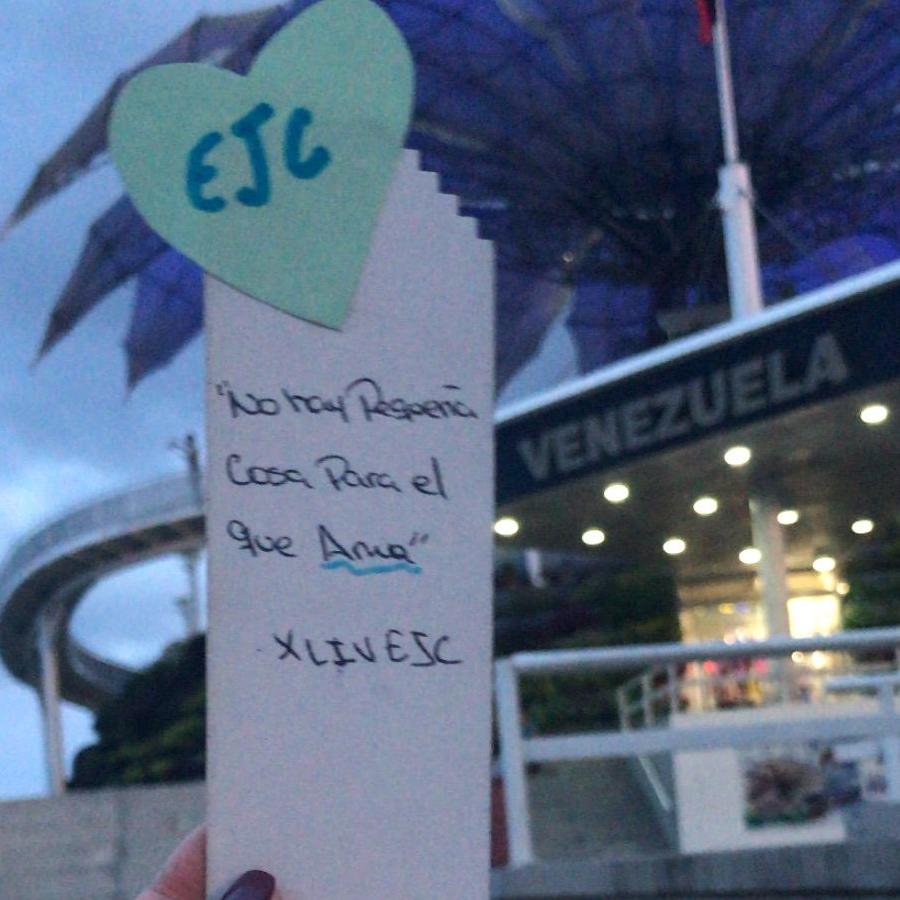 EJC
"No hay Pequeña
Cosa Para el
que Ama"
XLIV EJC
VENEZUELA